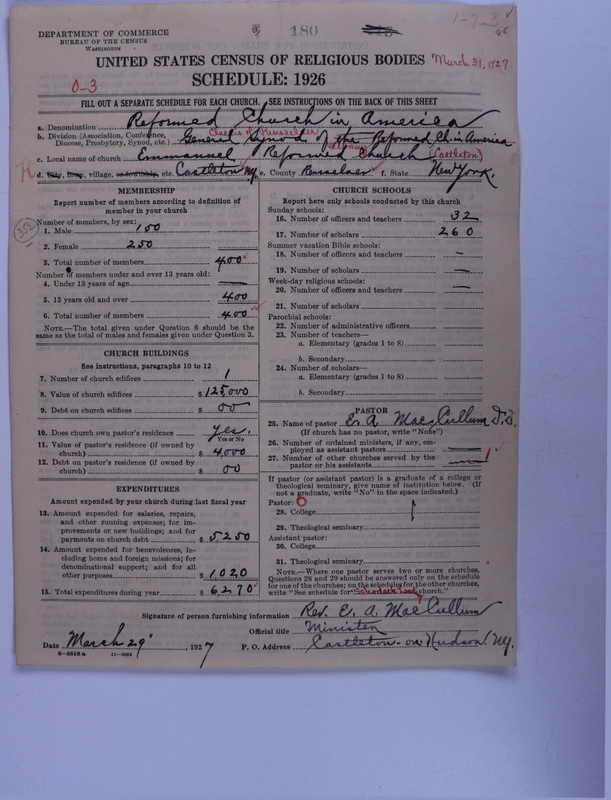 1-7-3
180
DEPARTMENT OF COMMERCE
BUREAU OF THE CENSUS
WASHINGTON
UNITED STATES CENSUS OF RELIGIOUS BODIES March 31, 1927.
SCHEDULE: 1926
0-3
FILL OUT A SEPARATE SCHEDULE FOR EACH CHURCH. SEE INSTRUCTIONS ON THE BACK OF THIS SHEET
a. Denomination Reformed Church in America
Classis of Rensselaer
b. Division (Association, Conference, Diocese, Presbytery, Synod, etc.) General Synod of the Reformed Ch. in America
c. Local name of church Emmanuel Reformed Church (Castleton)
d. City, town, village, or township, etc. Castleton NY. e. County Rensselaer f. State New York.
MEMBERSHIP
Report number of members according to definition of
member in your church
Number of members, by sex:
352
1. Male 150
2. Female 250
3. Total number of members 400
Number of members under and over 13 years old:
4. Under 13 years of age —
5. 13 years old and over 400
6. Total number of members 400
NOTE.—The total given under Question 6 should be the
same as the total of males and females given under Question 3.
CHURCH BUILDINGS
See instructions, paragraphs 10 to 12
7. Number of church edifices 1
8. Value of church edifices $ 125,000
9. Debt on church edifices $ 00
10. Does church own pastor's residence Yes.
Yes or No
11. Value of pastor's residence (if owned by
church) $ 4,000
12. Debt on pastor's residence (if owned by
church) $ 00
EXPENDITURES
Amount expended by your church during last fiscal year
13. Amount expended for salaries, repairs,
and other running expenses; for im-
provements or new buildings; and for
payments on church debt $ 5250
14. Amount expended for benevolences, in-
cluding home and foreign missions; for
denominational support; and for all
other purposes $ 1,020
15. Total expenditures during year $ 6270
CHURCH SCHOOLS
Report here only schools conducted by this church
Sunday schools:
16. Number of officers and teachers 32
17. Number of scholars 260
Summer vacation Bible schools:
18. Number of officers and teachers —
19. Number of scholars —
Week-day religious schools:
20. Number of officers and teachers —
21. Number of scholars
Parochial schools:
22. Number of administrative officers
23. Number of teachers—
a. Elementary (grades 1 to 8)
b. Secondary
24. Number of scholars—
a. Elementary (grades 1 to 8)
b. Secondary
PASTOR
25. Name of pastor E. A. MacCullum D.D.
(If church has no pastor, write "None")
26. Number of ordained ministers, if any, em-
ployed as assistant pastors —
27. Number of other churches served by the
pastor or his assistants — 1
If pastor (or assistant pastor) is a graduate of a college or
theological seminary, give name of institution below. (If
not a graduate, write "No" in the space indicated.)
Pastor:
28. College
29. Theological seminary
Assistant pastor:
30. College
31. Theological seminary
NOTE.—Where one pastor serves two or more churches,
Questions 28 and 29 should be answered only on the schedule
for one of the churches; on the schedules for the other churches,
write "See schedule for Schodack Land. church."
Signature of person furnishing information Rev. E. A. MacCullum
Official title Minister
Date March 29, 1927 P. O. Address Castleton-on-Hudson, NY.
8-5515a 11-9354